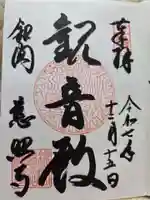 奉拝
令和七年
十二月十三日
観音殿
銀閣
慈照寺